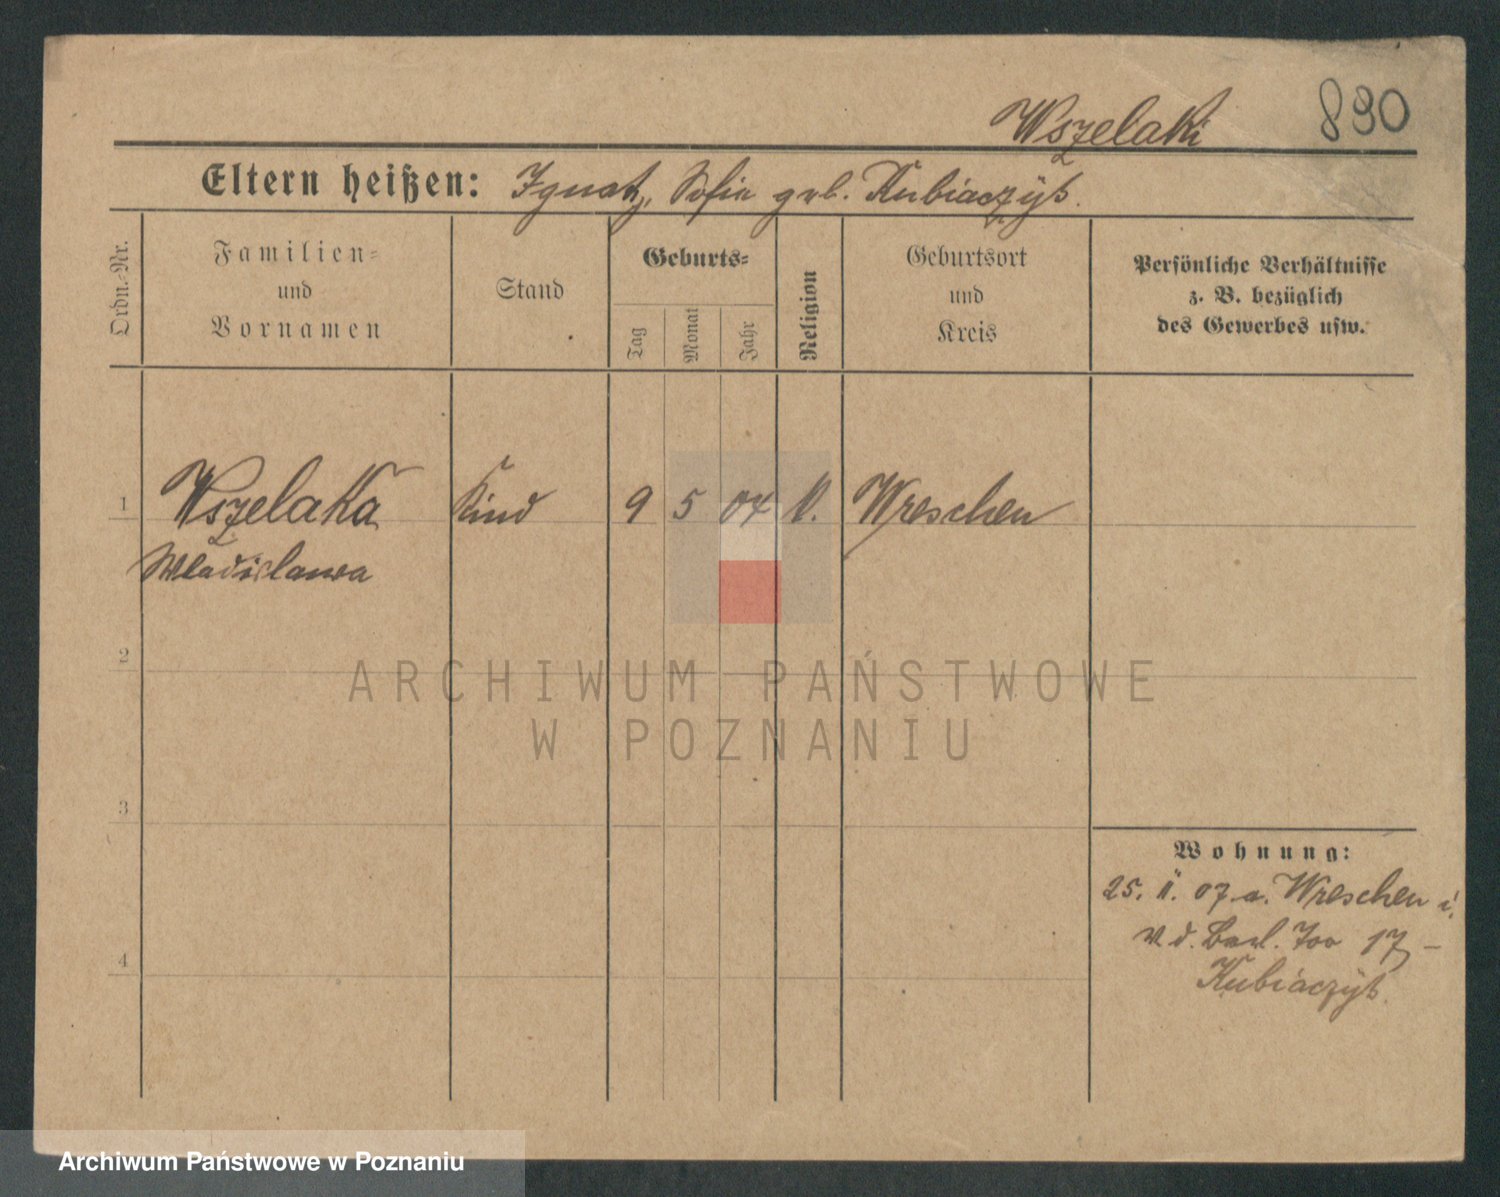 Wszelaki 890
Eltern heißen: Ignatz, Sofia geb. Kubiaczÿk.
Ordn.-Nr.
Familien=
und
Vornamen
Stand
Geburts=
Tag
Monat
Jahr
Religion
Geburtsort
und
Kreis
Persönliche Verhältnisse
z. B. bezüglich
des Gewerbes usw.
1 Wszelaka Kind 9 5 04 k. Wreschen
Wladislawa
2
3
4
ARCHIWUM PAŃSTWOWE
W POZNANIU
Wohnung:
25. II. 07. a. Wreschen i.
v. d. 17 –
Kubiaczÿk.
Archiwum Państwowe w Poznaniu